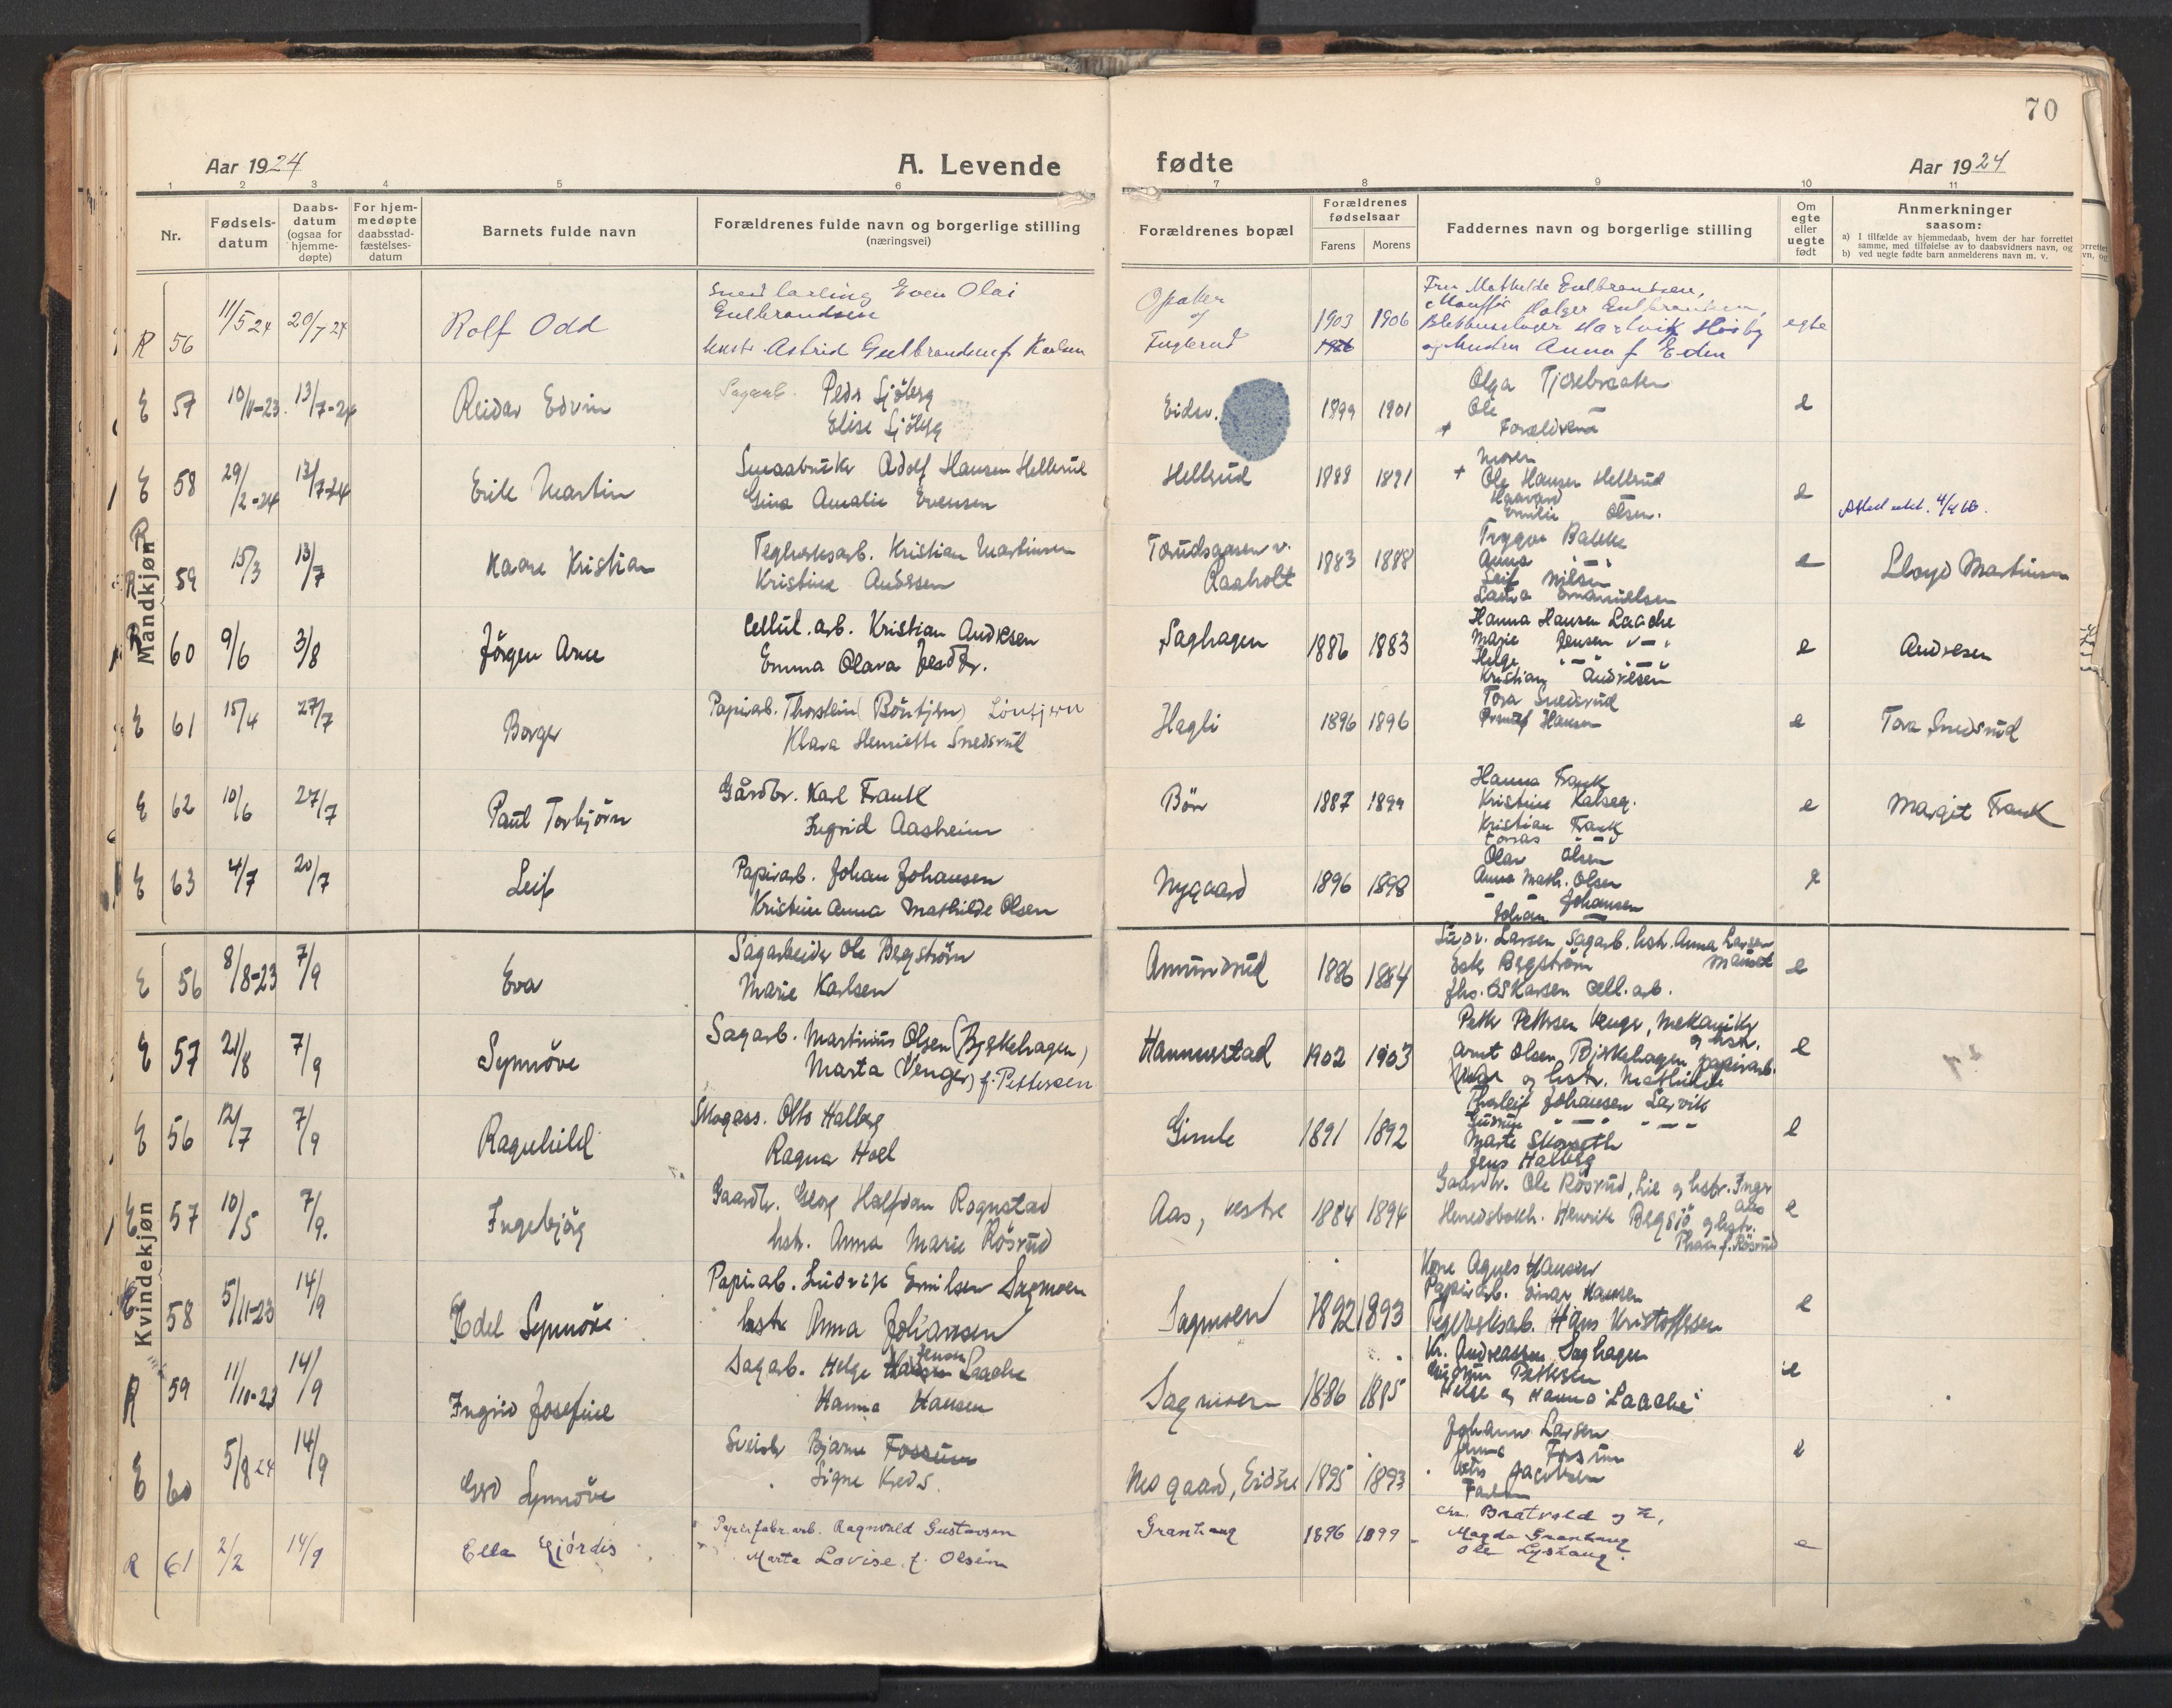 70
Aar 1924
A. Levende
fødte
Aar 1924
1 2 3 4 5 6 7 8 9 10 11
Nr.
Fødsels-
datum
Daabs-
datum
(ogsaa for
hjemme-
døpte)
For hjem-
medøpte
daabsstad-
fæstelses-
datum
Barnets fulde navn
Forældrenes fulde navn og borgerlige stilling
(næringsvei)
Forældrenes bopæl
Forældrenes
fødselsaar
Farens Morens
Faddernes navn og borgerlige stilling
Om
egte
eller
uegte
født
Anmerkninger
saasom:
a) I tilfælde av hjemmedaab, hvem der har forrettet
samme, med tilføielse av to daabsvidners navn, og
b) ved uegte fødte barn anmelderens navn m. v.
Mandkjøn
R 56 11/5 24 20/7 24 Rolf Odd
Even Olai
Gulbrandsen
Astrid Gulbrandsen f. Karlsen
og
1903 1906
Fru Mathilde Gulbrandsen,
Holger Gulbrandsen,
og Anna f. Eden
egte
E 57 10/11-23. 13/7-24 Reidar Edvin
Sagarb. Peder Sjöberg
Elise Sjöberg
Eidsv. 1899 1901
Olga Tjosebraaten
Ole
+ Forældrene
e
E 58 29/2-24 13/7-24 Erik Martin
Smaabruker Adolf Hansen Hellerud
Gina Amalie Evensen
Hellerud 1888 1891
Moren
+ Ole Hansen Hellerud
Haavard
Emilie Olsen.
e
R 59 15/3 13/7 Kaare Kristian
Teglverksarb. Kristian Martinsen
Kristine Andersen
Torudsaasen v.
Raaholt
1883 1888
Trygve Bakke
Anna -"-
Leif Nilsen
Laura Emanuelsen
e
Lloyd Martinsen
R 60 9/6 3/8 Jörgen Arne
Cellul. arb. Kristian Andresen
Emma Olava
Saghagen 1886 1883
Hanna Hansen Laache
Marie Jensen
Helge
Kristian Andresen
e
Andresen
E 61 15/4 27/7 Borger
Papirarb. Thorstein (Böntjern) Löntjern
Klara Henriette Snedsrud
Hagli 1896 1896
Tora Snedsrud
Hansen
e
Tora Snedsrud
E 62 10/6 27/7 Paul Torbjörn
Gårdbr. Karl Frank
Ingrid Aasheim
Bön 1887 1899
Hanna Frank
Kristine
Kristian Frank
e
Margit Frank
E 63 4/7 20/7 Leif
Papirarb. Johan Johansen
Kristine Anna Mathilde Olsen
Nygaard 1896 1898
Olav Olsen
Anna Math. Olsen
Johan Johansen
e
Kvindekjøn
E 56 8/8-23 7/9 Eva
Sagarbeider Ole Bergström
Marie Karlsen
Amundrud 1886 1884
Larsen, Sagarb. hstr. Anna Larsen
Bergström
Oskarsen Cell. arb.
e
E 57 21/8 7/9 Synnöve
Sagarb. Martinius Olsen (Bjerkehagen)
Marta (Venger) f. Pettersen
Hammerstad 1902 1903
Petter Pettersen Venger, mekaniker
og hstr.
Arnt Olsen Bjerkehagen, papirarb.
og hstr. Mathilde
e
E 56 12/7 7/9 Ragnhild
Skogass. Otto Halberg
Ragna Hoel
Gimle 1891 1892
Thorleif Johansen Larvik
Gudrun -"- -"-
Marte
Jens Halberg
e
E 57 10/5 7/9. Ingebjörg
Gaardbr. Georg Halfdan Rognstad
hstr. Anna Marie Rösrud
Aas, vestre 1884 1894
Gaardbr. Ole Rösrud, Lie og hstr. Inger
Herredsbokh. Henrik Bergsjö og hstr.
Thea f. Rösrud
e
58 5/11-23 14/9 Edel Synnöve
Papirarb. Ludvik Emilsen Sagmoen
hstr Anna Johansen
Sagmoen 1892 1893
Kone Agnes Hansen
Papirarb. Einar Hansen
Teglverksarb. Hans Kristoffersen
e
R 59 11/10-23 14/9 Ingrid Josefine
Sagarb. Helge Jensen Laache
Hanna Hansen
Sagmoen 1886 1895
Kr. Andreassen Saghagen
Pettersen
Helge og Hanna Laache
e
E 60 5/8 24 14/9 Gerd Synnöve
Bjarne Fossum
Signe
Nesgaard, Eidsv 1895 1893
Johann Larsen
Fossum
Jacobsen
e
R 61 2/2 14/9 Ella Hjördis
Papirfabr.arb. Ragnvald Gustavsen
Marta Lovise f. Olsen
Granhaug 1896 1899
Chr. Bratvold og
Magda Granhaug
Ole Lyshaug.
e